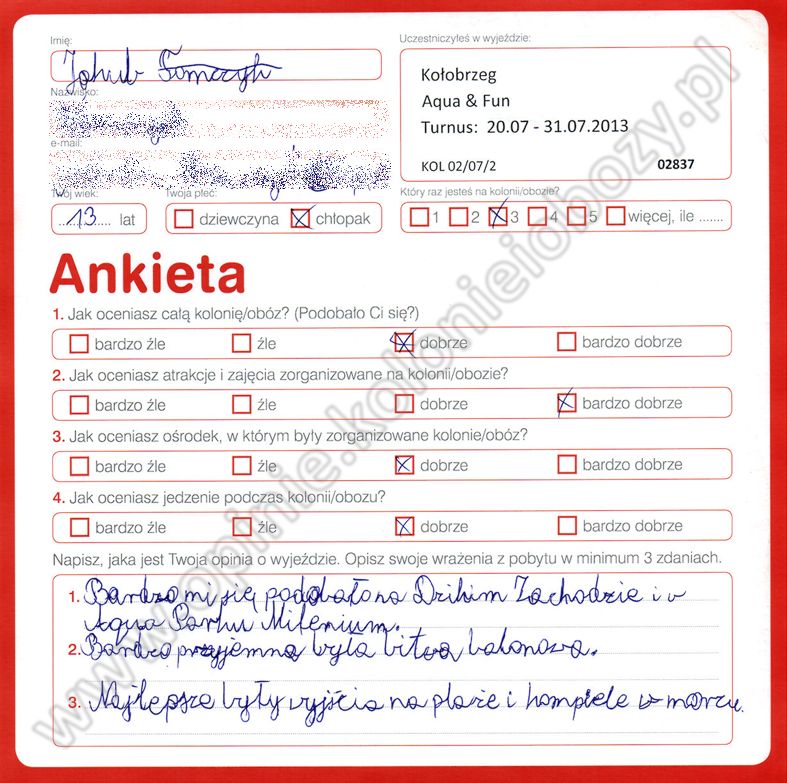 Imię:
Jakub
Nazwisko:
e-mail:
Twój wiek:
13 lat
Twoja płeć:
dziewczyna chłopak
Uczestniczyłeś w wyjeździe:
Kołobrzeg
Aqua & Fun
Turnus: 20.07 - 31.07.2013
KOL 02/07/2 02837
Który raz jesteś na kolonii/obozie?
1 2 3 4 5 więcej, ile .......
Ankieta
1. Jak oceniasz całą kolonię/obóz? (Podobało Ci się?)
bardzo źle źle dobrze bardzo dobrze
2. Jak oceniasz atrakcje i zajęcia zorganizowane na kolonii/obozie?
bardzo źle źle dobrze bardzo dobrze
3. Jak oceniasz ośrodek, w którym były zorganizowane kolonie/obóz?
bardzo źle źle dobrze bardzo dobrze
4. Jak oceniasz jedzenie podczas kolonii/obozu?
bardzo źle źle dobrze bardzo dobrze
Napisz, jaka jest Twoja opinia o wyjeździe. Opisz swoje wrażenia z pobytu w minimum 3 zdaniach.
1. Bardzo mi się podobało na Dzikim Zachodzie i w
Aqua Parku Milenium.
2. Bardzo przyjemna była bitwa balonowa.
3. Najlepsze były wyjścia na plaże i kompiele w morzu.
www.opinie.kolonieiobozy.pl